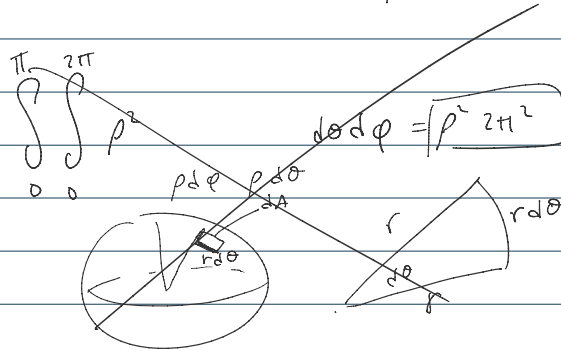 π 2π
∫ ∫ ρ² dθ dφ = ρ² 2π²
0 0
ρdφ ρdθ
dA
r rdθ
rdθ
dθ
r